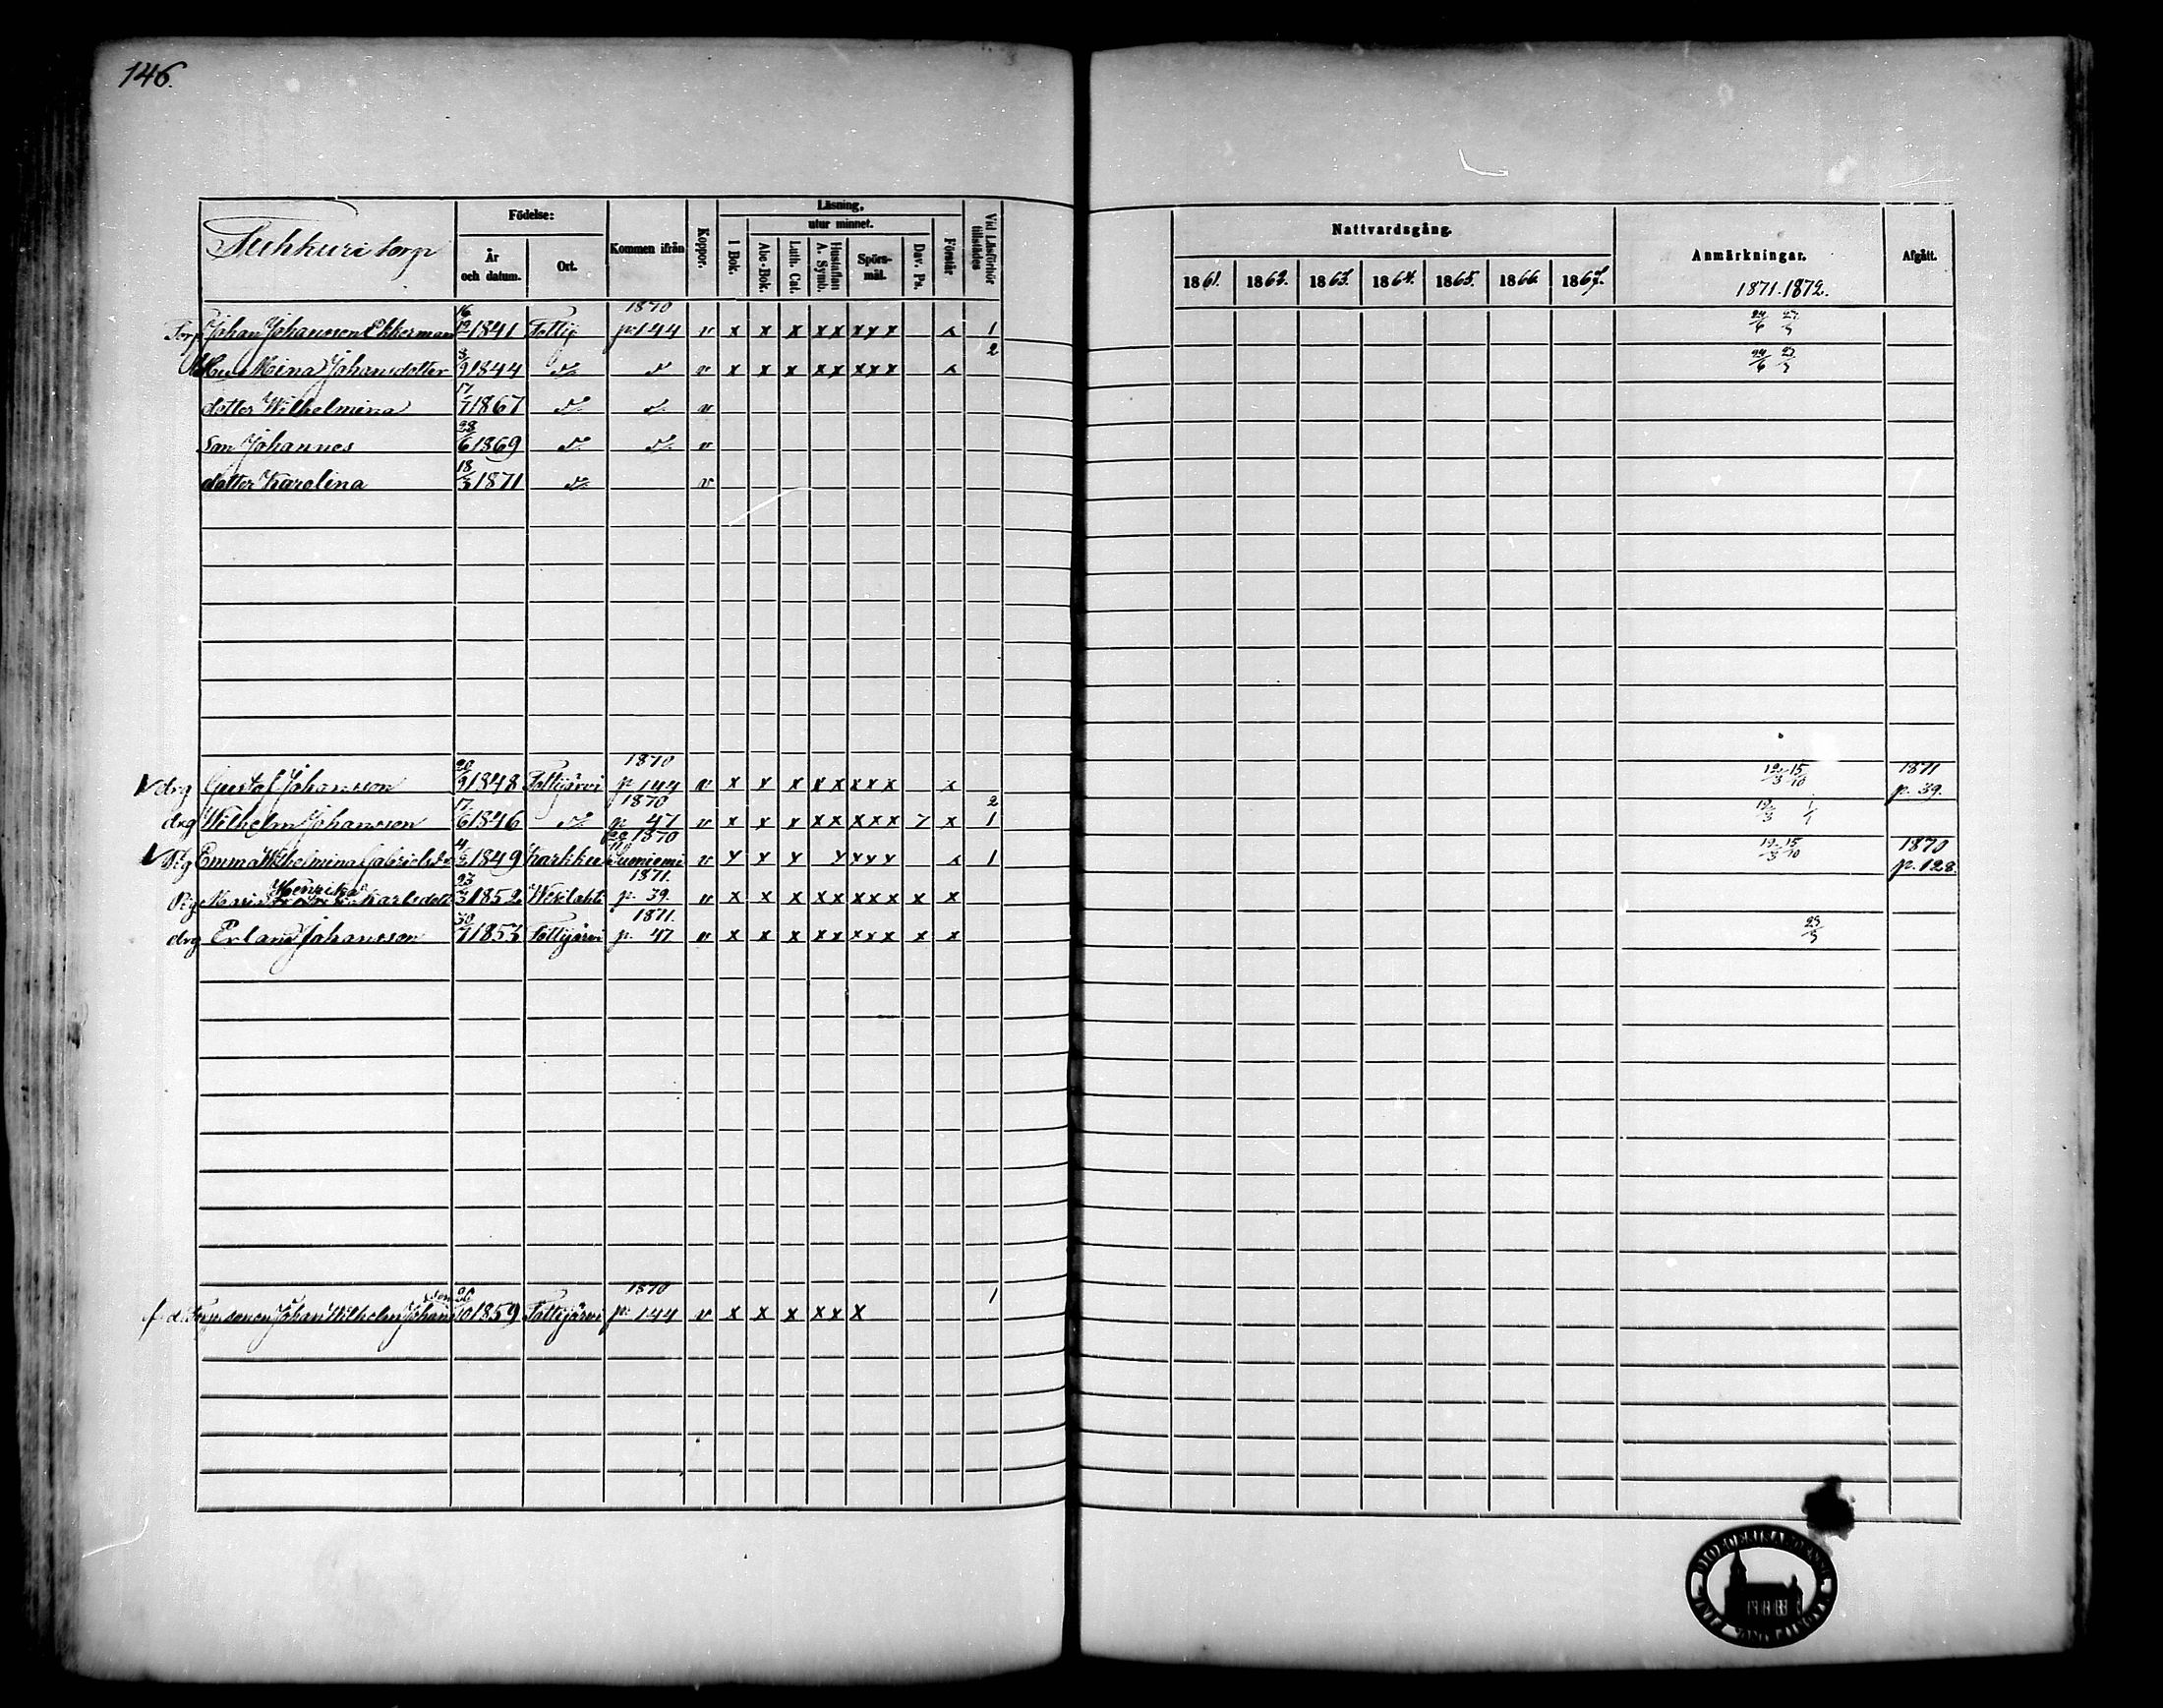 146.
Födelse:
Läsning,
utur minnet.
Nattvardsgång.
torp
År och datum.
Ort.
Kommen ifrån
Koppor.
I Bok.
Abc-Bok.
Luth. Cat.
Hustaflan A. Symb.
Spörs-mål.
Dav. Ps.
Förstår
Vid Läsförhör tillstädes
1861. 1862. 1863. 1864. 1865. 1866. 1867.
Anmärkningar.
1871. 1872.
Afgått.
Torp Johan Johansson Ekkerman 16/12 1841 Tottij 1870 p. 144 v x x x x x x x x x 1 24/6
Hu Mina Johansdotter 3/9 1844 v x x x x x x x x x 2 24/6
dotter Wilhelmina 1867 v
Son Johannes 28/6 1869 v
dotter Karolina 18/3 1871 v
drg Gustaf Johansson 20/9 1848 Tottijärvi 1870 p. 144 v x x x x x x x x x 12/3 15/10 1871 p. 39.
drg Wilhelm Johansson 17/6 1846 1870 p. 47 v x x x x x x x x 7 x 2 1 12/3 1/1
Pig Emma Wilhelmina 4/2 1849 Karkku 1870 v x x x x x x x x 1 12/3 15/10 1870 p. 128.
Pig Maria Henrika Karlsdott 23/3 1852 Wesilahti 1871. p. 39. v x x x x x x x x x x
drg Erland Johansson 30/7 1853 Tottijärvi 1871. p. 47 v x x x x x x x x x x
f. d. Johan Wilhelm Johans son 26/10 1859 Tottijärvi 1870 p. 144 v x x x x x x 1